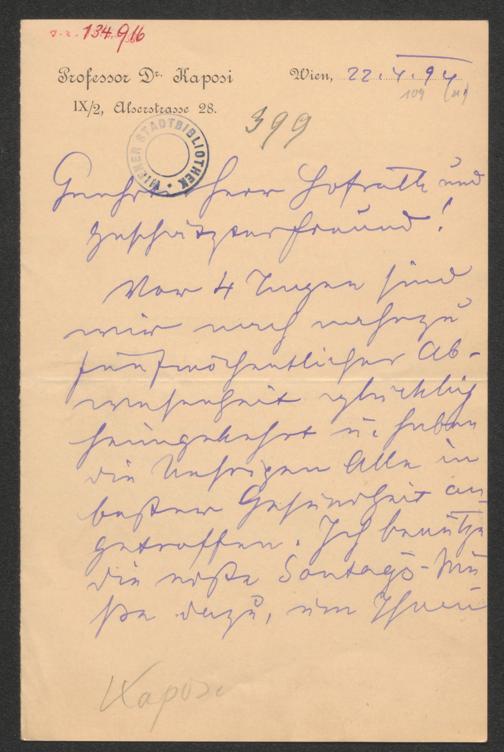 134.916
Professor Dr. Kaposi
IX/2, Alserstrasse 28.
Wien, 22.4.94
109
399
WIENER STADTBIBLIOTHEK
Geehrter Herr Hofrath und
geschätzter Freund!
Vor 4 Tagen sind
wir nach nahezu
fünfwöchentlicher Ab-
wesenheit glücklich
heimgekehrt u. haben
die Unsrigen Alle in
bester Gesundheit an-
getroffen. Ich benütze
die erste Sontags-Mu
ße dazu, um Ihnen
Kaposi